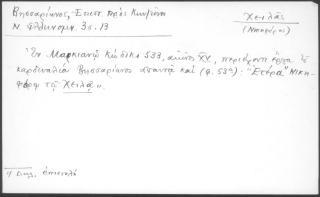 Βησσαρίωνος, Ἐπιστ. πρὸς
Ν. 35.13
Χειλᾶς
(Νικηφόρος)
Ἐν Μαρκιανῷ Κώδικι 533, αἰῶνος XV, περιέχοντι ἔργα τοῦ
καρδιναλίου Βησσαρίωνος ἀπαντᾷ καὶ (φ. 53α): "Ἑτέρα" Νικη-
φόρῳ τῷ Χειλᾷ».
ἐπιστολὴ